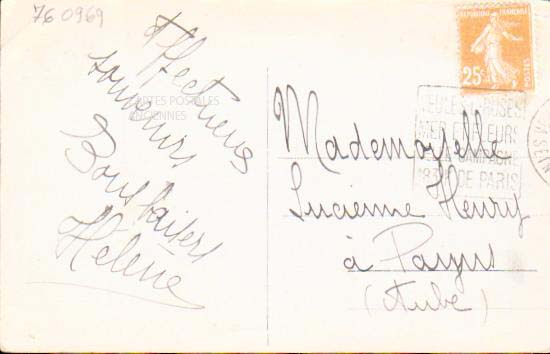 76 0969
Affectueux
souvenirs
Bons baisers
Hélène
CARTES POSTALES
ANCIENNES
REPUBLIQUE FRANÇAISE
25c
POSTES
MER
FLEURS
DE PARIS
Mademoiselle
Lucienne Henry
à Payns
(Aube)